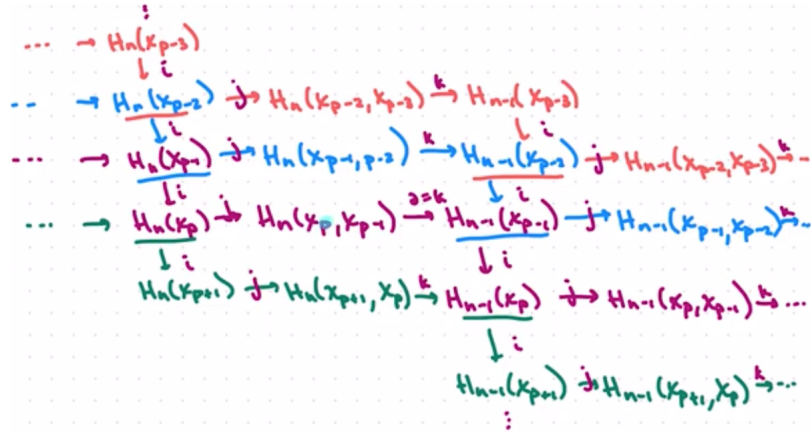 ⋮
··· → Hn(Xp-3)
↓ i
·· → Hn(Xp-2) j→ Hn(Xp-2, Xp-3) k→ Hn-1(Xp-3)
↓ i ↓ i
··· → Hn(Xp-1) j→ Hn(Xp-1, p-2) k→ Hn-1(Xp-2) j→ Hn-1(Xp-2, Xp-3) k→ ··
↓ i ↓ i
··· → Hn(Xp) j→ Hn(Xp, Xp-1) ∂=k→ Hn-1(Xp-1) j→ Hn-1(Xp-1, Xp-2) k→ ··
↓ i ↓ i
Hn(Xp+1) j→ Hn(Xp+1, Xp) k→ Hn-1(Xp) j→ Hn-1(Xp, Xp-1) k→ ···
↓ i
Hn-1(Xp+1) j→ Hn-1(Xp+1, Xp) k→ ···
⋮